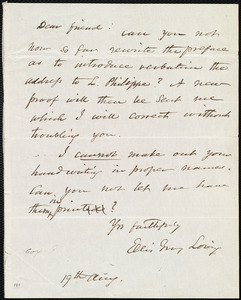 Dear friend: Can you not
now so far rewrite the preface
as to introduce verbatim the
address to L. Philippe? A new
proof will then be sent me
which I will correct without
troubling you.
I cannot make out your
handwriting in proper names.
Can you not let me have
them in print?
Yrs faithfully
Ellis Gray Loring
19th Aug.